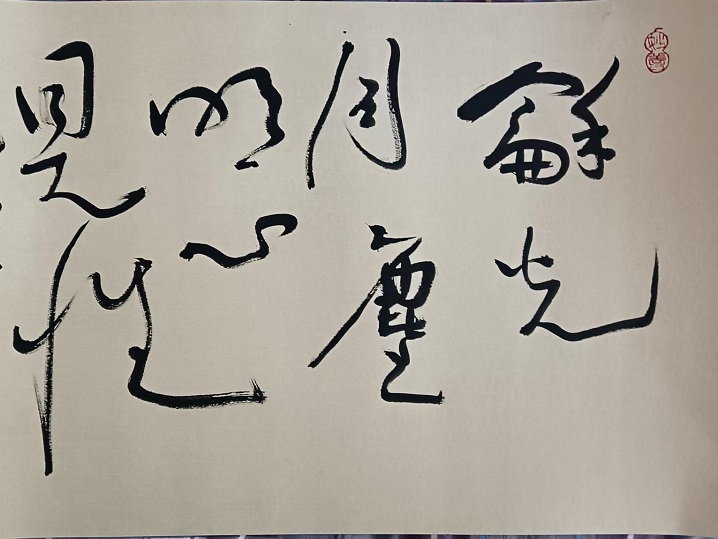 龢光
同塵
明心
見性